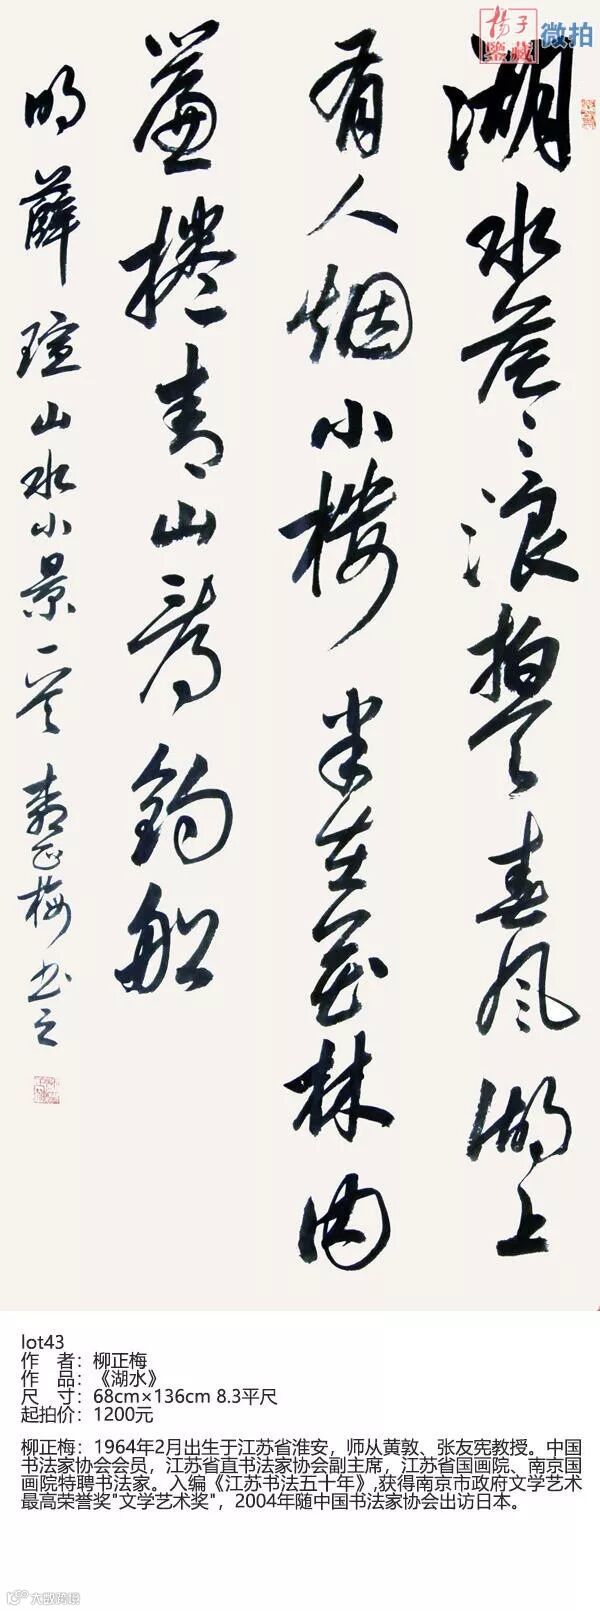 揚子
鑒藏
微拍
湖水茫〻浪拍天春风湖上
有人烟小楼半在花林内
簾捲青山釣船
明薛瑄山水小景一首柳正梅书之
lot43
作 者：柳正梅
作 品：《湖水》
尺 寸：68cm×136cm 8.3平尺
起拍价：1200元
柳正梅：1964年2月出生于江苏省淮安，师从黄敦、张友宪教授。中国
书法家协会会员，江苏省直书法家协会副主席，江苏省国画院、南京国
画院特聘书法家。入编《江苏书法五十年》,获得南京市政府文学艺术
最高荣誉奖"文学艺术奖"，2004年随中国书法家协会出访日本。
大数跨境